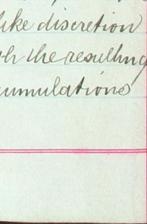 like discretion
th the resulting
cumulations